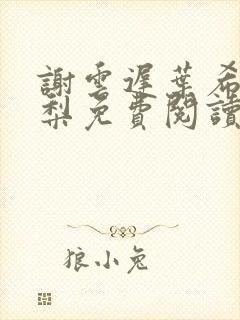 謝雲遲葉希
梨免費閱讀
狼小兔